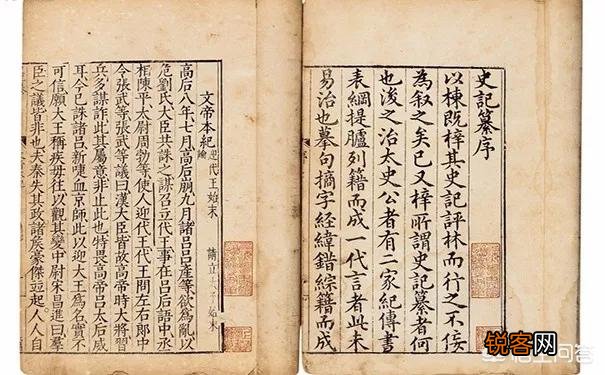 史記纂序
以棟既梓其史記評林而行之不佞
為叙之矣已又梓所謂史記纂者何
也後之治太史公者有二家紀傳書
表綱提臚列籍而成一代言者此未
易治也摹句摘字經緯錯綜籍而成
文帝本紀 迎代王始末 請立
高后八年七月高后崩九月諸呂呂產等欲為亂以
危劉氏大臣共誅之謀召立代王事在呂后語中丞
相陳平太尉周勃等使人迎代王代王問左右郎中
令張武等張武等議曰漢大臣皆故高帝時大將習
兵多謀詐此其屬意非止此也特畏高帝呂太后威
耳今已誅諸呂新啑血京師此以迎大王為名實不
可信願大王稱疾毋往以觀其變中尉宋昌進曰羣
臣之議皆非也夫秦失其政諸矦豪傑竝起人人自
锐客网